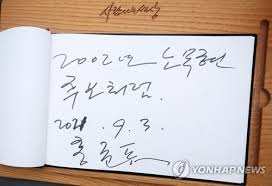 사람사는세상
2002년 노무현
후보처럼.
2021. 9. 3.
홍준표
YONHAPNEWS